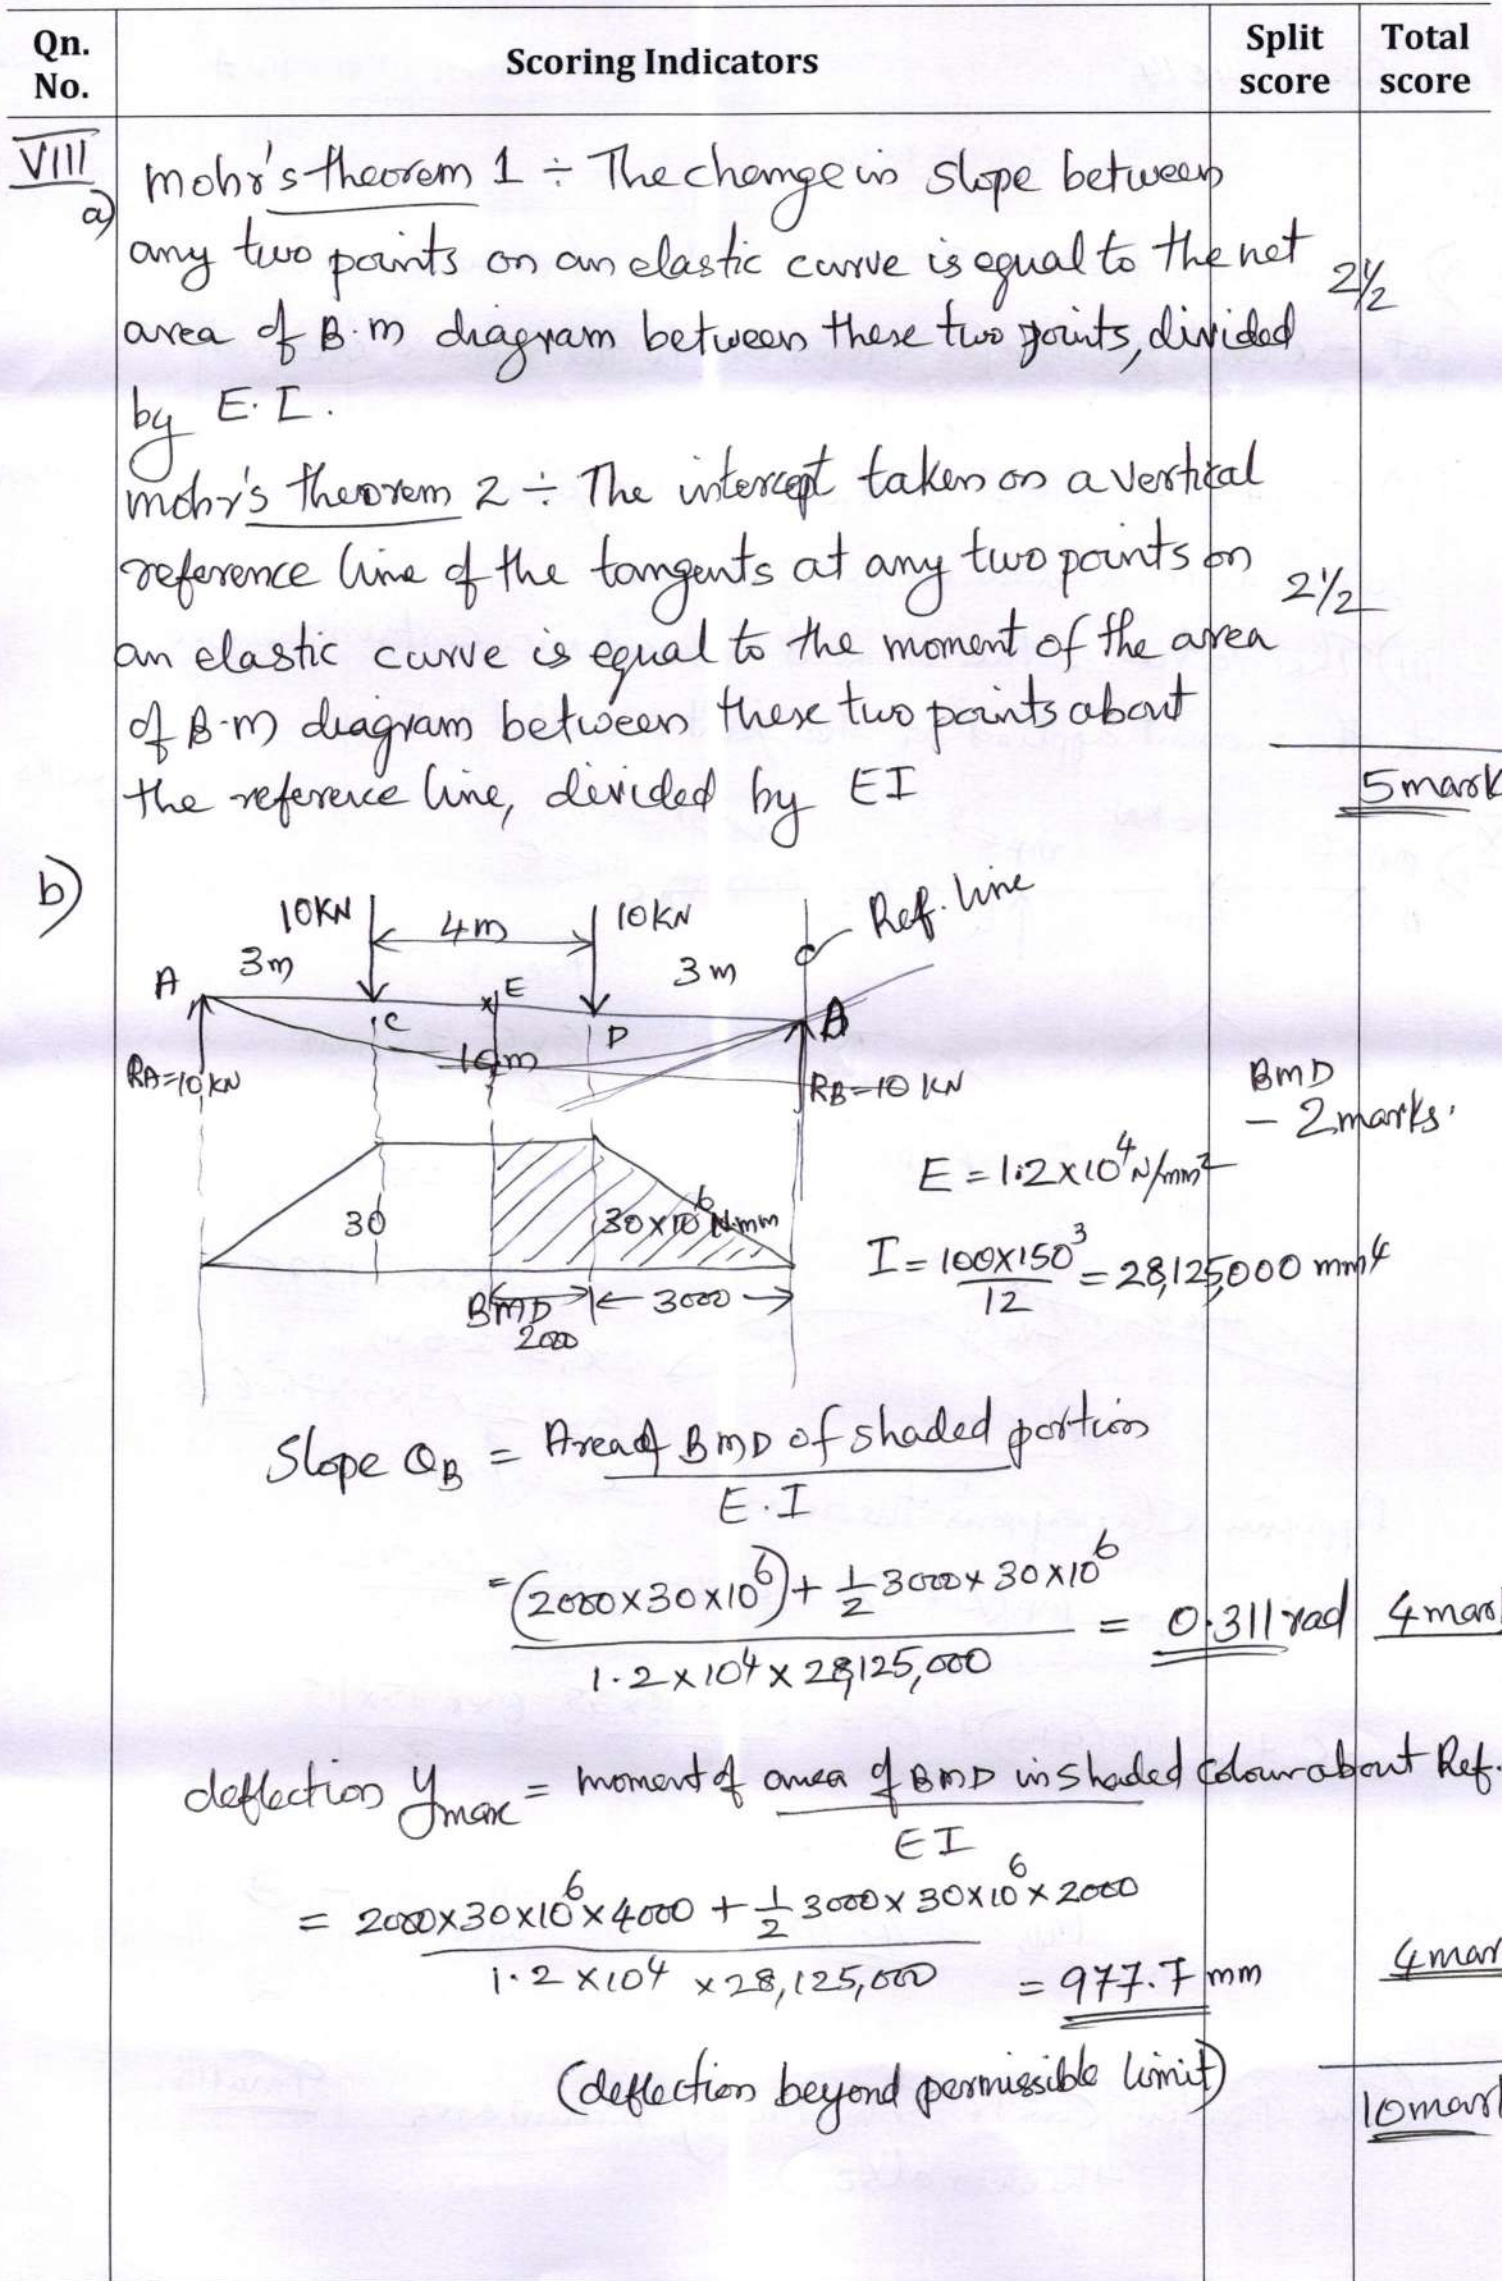 Qn. No.
Scoring Indicators
Split score
Total score
VIII
a)
Mohr's theorem 1 ÷ The change in slope between
any two points on an elastic curve is equal to the net
2½
area of B.M diagram between these two points, divided
by E.I.
Mohr's theorem 2 ÷ The intercept taken on a vertical
reference line of the tangents at any two points on
2½
an elastic curve is equal to the moment of the area
of B.M diagram between these two points about
the reference line, divided by EI
5mark
b)
10KN
4m
10KN
Ref. line
3m
3m
A
E
B
C
D
10m
RA=10KN
RB=10 KN
BMD
- 2marks.
E = 1.2×10⁴ N/mm²
30
30×10⁶ N.mm
I = 100×150³/12 = 28,125,000 mm⁴
BMD
3000
2000
Slope θB = Area of BMD of shaded portion
E.I
= (2000×30×10⁶) + ½ 3000×30×10⁶
= 0.311 rad
4mar
1.2×10⁴×28,125,000
deflection ymax = moment of area of BMD in shaded colour about Ref.
EI
= 2000×30×10⁶×4000 + ½ 3000×30×10⁶×2000
1.2×10⁴ ×28,125,000 = 977.7 mm
4mar
(deflection beyond permissible limit)
10mar